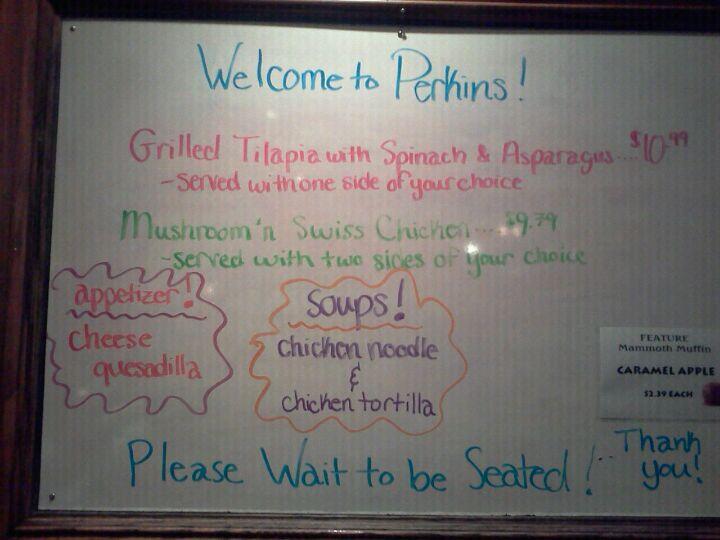 Welcome to Perkins!
Grilled Tilapia with Spinach & Asparagus....$10.99
-served with one side of your choice
Mushroom 'n Swiss Chicken....$9.79
-served with two sides of your choice
appetizer!
cheese
quesadilla
soups!
chicken noodle
&
chicken tortilla
FEATURE
Mammoth Muffin
CARAMEL APPLE
$2.39 EACH
Please Wait to be Seated!..
Thank
you!